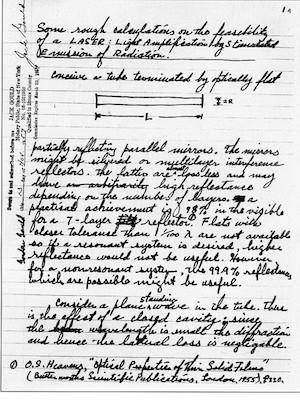 1
Some rough calculations on the feasibility
of a LASER: Light Amplification by Stimulated
Emission of Radiation.
conceive a tube terminated by optically flat
L
partially reflecting parallel mirrors. The mirrors
might be silvered or multilayer interference
reflectors. The latter are lossless and may
have high reflectance
depending on the number of layers. A
practical achievement is 98% in the visible
for a 7-layer reflector. Flats with
closer tolerance than 1/100 λ are not available
so if a resonant system is desired, higher
reflectance would not be useful. However
for a nonresonant system, the 99.9% reflectances
which are possible might be useful.
Consider a plane standing wave in the tube. There
is the effect of a closed cavity; since
the wavelength is small the diffraction
and hence the lateral loss is negligible.
O.S. Heavens, "Optical Properties of Thin Solid Films"
(Butterworths Scientific Publications, London, 1955), p. 220.
JACK GOULD
Notary Public, State of New York